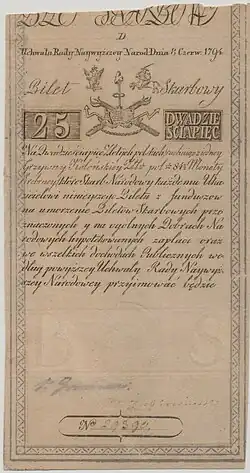 D
Uchwała Rady Naywyższey Narod: Dnia 8 Czerw: 1794
Bilet Skarbowy
25 DWADZIE
ŚCIAPIĘĆ
Na Dwadzieściapięć Złotych polskich, rachuiąc iedną
Grzywnę Kolońską Zło. pol. 84½ Monetą
srebrną, które Skarb Narodowy każdemu Oka-
zicielowi ninieyszego Biletu z funduszow
na umorzenie Biletow Skarbowych prze
znaczonych y na ogolnych Dobrach Na
rodowych hypotekowanych zapłaci oraz
we wszelkich dochodach Publicznych we
dług powyższey Uchwały Rady Naywyż
szey Narodowey przyimować będzie
No